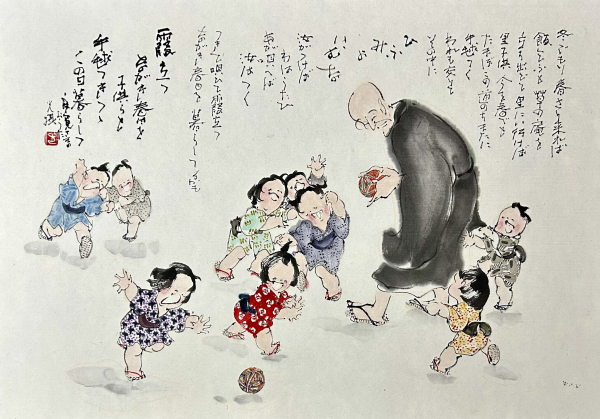 冬ごもり春さり来れば
飯乞ふと草の庵を
立ち出でて里にい行けば
里子供今を春べと
たまほこの道のちまたに
手毬つく
われも交も
そが中に
ひふ
みよ
いむな
汝がつけば
わはうたひ
あが つけば
汝はつく
つきて唄ひて霞立
ながき春日を暮らしつるも
霞立つ
ながき春日を
子供らと
手毬つきつつ
この日暮らしつ
良寛